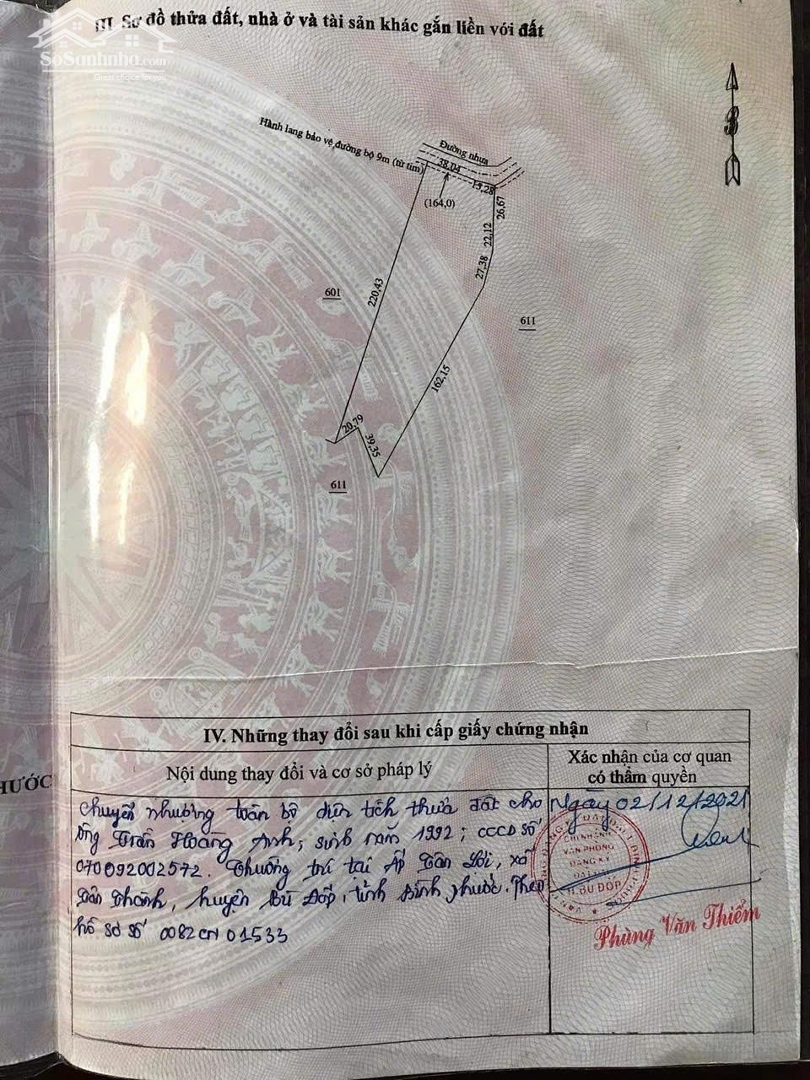 III. Sơ đồ thửa đất, nhà ở và tài sản khác gắn liền với đất
SoSanhnha.com
Hành lang bảo vệ đường bộ 9m (từ tim)
Đường nhựa
38,04
13,28
(164,0)
26,67
22,12
27,38
220,43
601
611
162,15
20,79
39,35
611
HƯỚC
IV. Những thay đổi sau khi cấp giấy chứng nhận
Nội dung thay đổi và cơ sở pháp lý
Xác nhận của cơ quan
có thẩm quyền
Chuyển nhượng toàn bộ diện tích thửa đất cho
Ông Trần Hoàng Anh, sinh năm 1992; CCCD số
070092002572. Thường trú tại Ấp Tân Lợi, xã
Tân Thành, huyện Bù Đốp, tỉnh Bình Phước. Theo
hồ sơ số 0082CN01533
Ngày 02/12/2021
CHI NHÁNH
VĂN PHÒNG
ĐĂNG KÝ
ĐẤT ĐAI
H. BÙ ĐỐP
Phùng Văn Thiểm